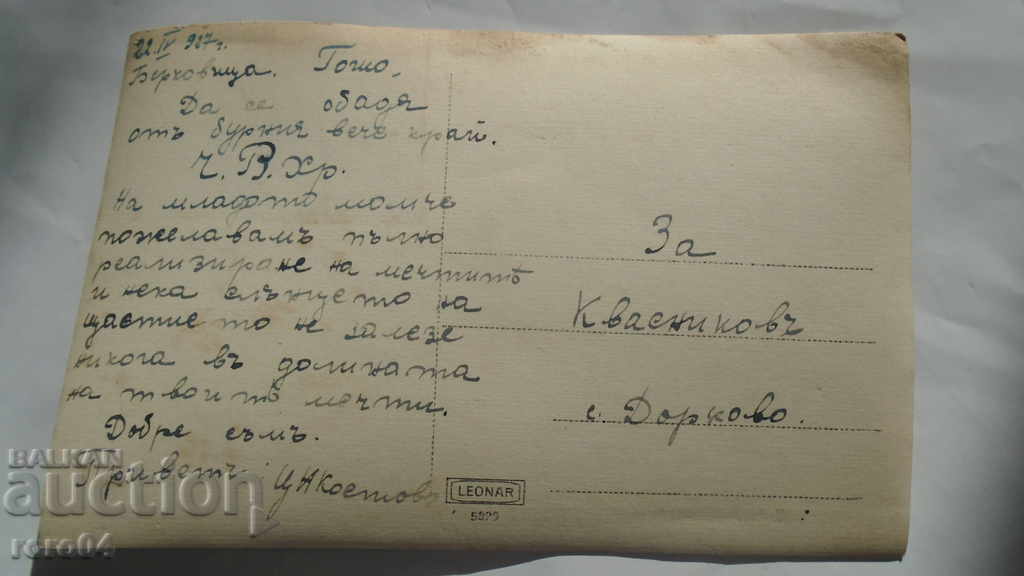 22. IV 927 г.
Берковица. Гошо,
Да се обадя
отъ бурния вече край.
Ч. В. Хр.
На младото момче
пожелавамъ пълно
реализиране на мечтитѣ
и нека слънцето на
щастието не залезе
никога въ долината
на твоитѣ мечти.
Добре съмъ.
Приветъ: ЦНКостовъ
За
Квасниковъ
с. Дорково.
LEONAR
BALKAN
auction
roro04